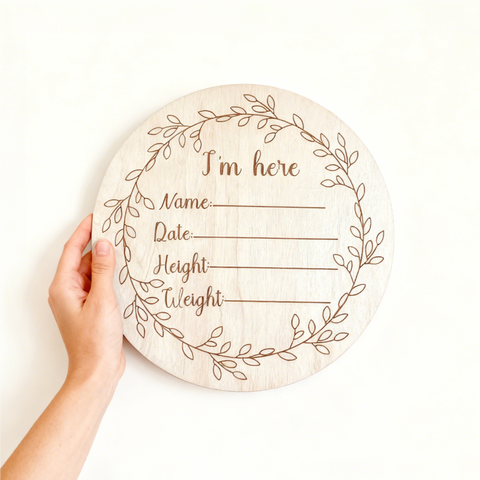 I'm here
Name:
Date:
Height
Weight: